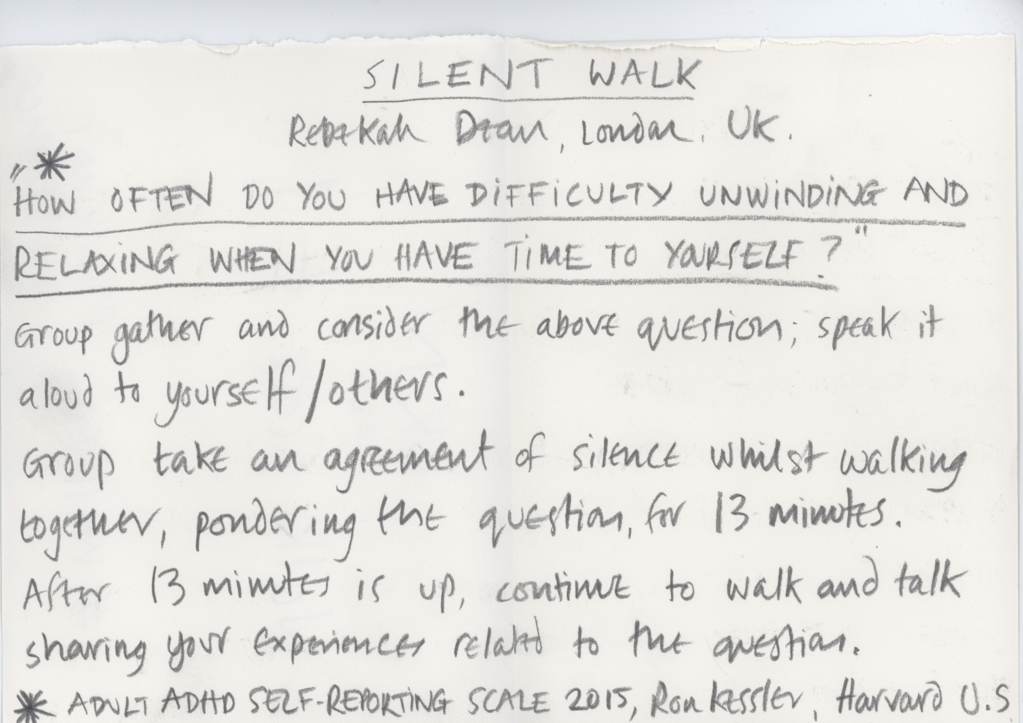 SILENT WALK
Rebekah Dean, London, UK.
"*
HOW OFTEN DO YOU HAVE DIFFICULTY UNWINDING AND
RELAXING WHEN YOU HAVE TIME TO YOURSELF?"
Group gather and consider the above question; speak it
aloud to yourself/others.
Group take an agreement of silence whilst walking
together, pondering the question, for 13 minutes.
After 13 minutes is up, continue to walk and talk
sharing your experiences related to the question.
* ADULT ADHD SELF-REPORTING SCALE 2015, Ron Kessler, Harvard U.S